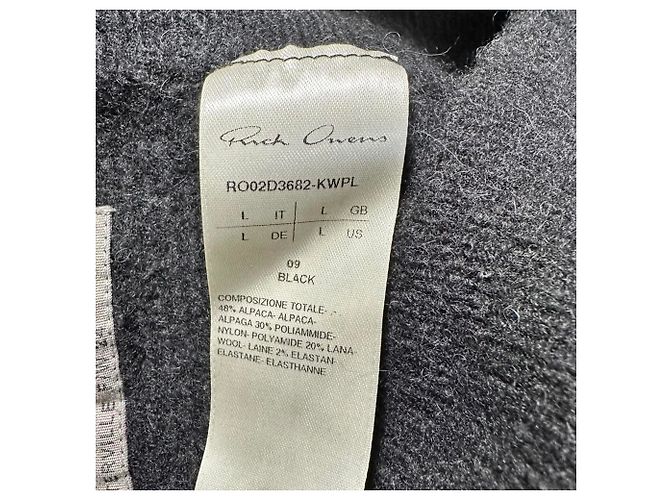 Rick Owens
RO02D3682-KWPL
L IT L GB
L DE L US
09
BLACK
COMPOSIZIONE TOTALE-
48% ALPACA- ALPACA-
ALPAGA 30% POLIAMMIDE-
NYLON- POLYAMIDE 20% LANA-
WOOL- LAINE 2% ELASTAN-
ELASTANE- ELASTHANNE